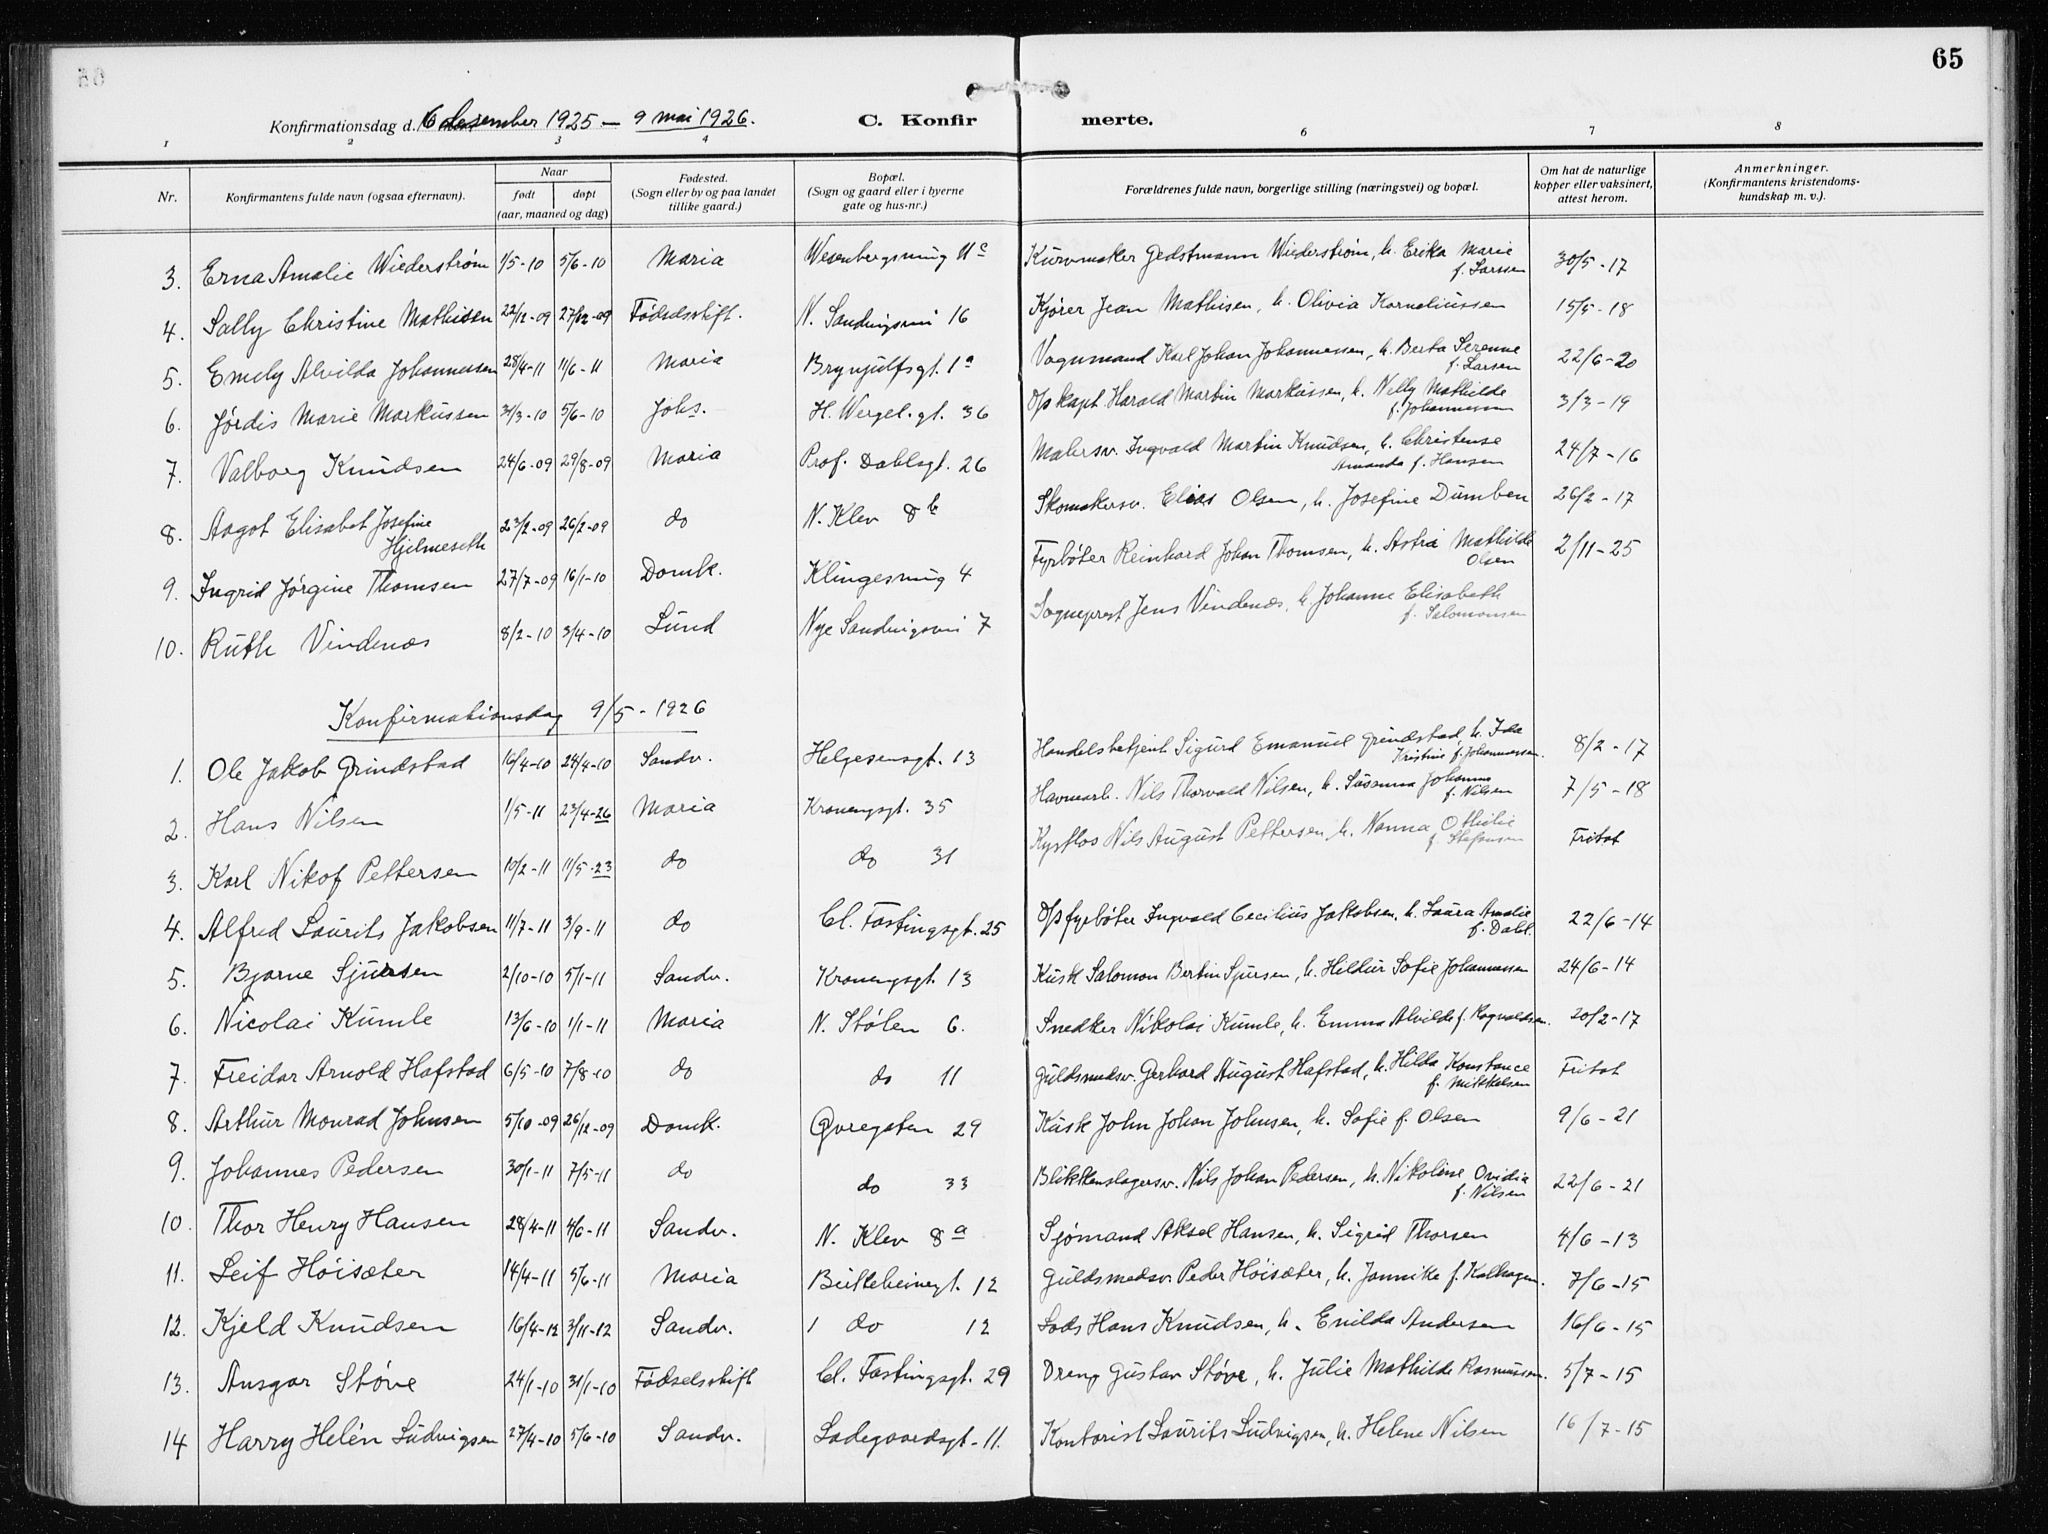 65
Konfirmationsdag d. 6 desember 1925 — 9 mai 1926. C. Konfirmerte.
1 2 3 4 6 7 8
Nr. Konfirmantens fulde navn (ogsaa efternavn). Naar født døpt (aar, maaned og dag) Fødested. (Sogn eller by og paa landet tillike gaard.) Bopæl. (Sogn og gaard eller i byerne gate og hus-nr.) Forældrenes fulde navn, borgerlige stilling (næringsvei) og bopæl. Om hat de naturlige kopper eller vaksinert, attest herom. Anmerkninger. (Konfirmantens kristendoms-kundskap m. v.).
3. Erna Amalie Wiederstrøm 1/5-10 5/6-10 Maria Wesenbergsmug 11c Kurvmaker Gedstmann Wiederstrøm, h. Erika Marie f. Larsen 30/5-17
4. Sally Christine Mathisen 22/12-09 27/12-09 Fødselsstift. N. Sandvigsvei 16 Kjører Jean Mathisen, h. Olivia Korneliussen 15/5-18
5. Emely Alvilda Johannessen 28/4-11 11/6-11 Maria Brynjulfsgt. 1a Vognmand Karl Johan Johannessen, h. Berta Serenne f. Larsen 22/6-20
6. Jørdis Marie Markussen 31/3-10 5/6-10 Johs. H. Wergel. gt. 36 D/s kapt. Harald Martin Markussen, h. Nelly Mathilde f. Johannessen 3/3-19
7. Valborg Knudsen 24/6-09 29/8-09 Maria Prof. Dahlsgt. 26 Malersv. Ingvald Martin Knudsen, h. Christense Amanda f. Hansen 24/7-16
8. Aagot Elisabet Josefine Hjelmeseth 23/2-09 26/2-09 do N. Klev 8b Skomakersv. Elias Olsen, h. Josefine Dumben 26/2-17
9. Ingrid Jørgine Thomsen 27/7-09 16/1-10 Domk. Klingesmug 4 Fyrbøter Reinhard Johan Thomsen, h. Astri Mathilde Olsen 2/11-25
10. Ruth Vindenæs 8/2-10 3/4-10 Lund Nye Sandvigsvei 7 Sogneprest Jens Vindenæs, h. Johanne Elisabeth f. Salomonsen
Konfirmationsdag 9/5-1926
1. Ole Jakob Grindstad 16/4-10 24/4-10 Sandv. Helgesensgt. 13 Handelsbetjent Sigurd Emanuel Grindstad, h. Ida Kristine f. Johannessen. 8/2-17
2. Hans Nilsen 1/5-11 23/4-26 Maria Kronengsgt. 35 Havnearb. Nils Thorvald Nilsen, h. Susanna Johanne f. Nilsen 7/5-18
3. Karl Nikof Pettersen 10/2-11 11/5-23 do do 31 Kystlos Nils August Pettersen, h. Nanna Othilie f. Stefansen Fritat
4. Alfred Laurits Jakobsen 11/7-11 3/9-11 do Cl. Fastingsgt. 25 D/s fyrbøter Ingvald Cecilius Jakobsen, h. Laura Amalie f. Dahl. 22/6-14
5. Bjarne Sjursen 2/10-10 5/1-11 Sandv. Kronengsgt. 13 Kusk Salomon Bertin Sjursen, h. Hildur Sofie Johannessen 24/6-14
6. Nicolai Kumle 13/6-10 1/1-11 Maria N. Stølen 6. Snedker Nikolai Kumle, h. Emma Alvilde f. Ragvaldsen. 20/2-17
7. Freidar Arnold Hafstad 6/5-10 7/8-10 do do 11 Guldsmedsv. Gerhard August Hafstad, h. Hilda Konstance f. Mikkelsen Fritat
8. Arthur Monrad Johnsen 5/10-09 26/12-09 Domk. Øvregaten 29 Kusk John Johan Johnsen, h. Sofie f. Olsen 9/6-21
9. Johannes Pedersen 30/1-11 7/5-11 do do 33 Blikkenslagersv. Nils Johan Pedersen, h. Nikoline Ovidia f. Nilsen 22/6-21
10. Thor Henry Hansen 28/4-11 4/6-11 Sandv. N. Klev 8a Sjømand Aksel Hansen, h. Sigrid Thorsen 4/6-13
11. Leif Høisæter 14/4-11 5/6-11 Maria Bulleheinegt. 12 Guldsmedsv. Peder Høisæter, h. Jannike f. Kalhagen. 7/6-15
12. Kjeld Knudsen 16/4-12 3/11-12 Sandv. 1 do 12 Lods Hans Knudsen, h. Enilda Andersen 16/6-15
13. Ansgar Støve 24/1-10 31/1-10 Fødselsstift Cl. Fastingsgt. 29 Dreng Gustav Støve, h. Julie Mathilde Rasmussen. 5/7-15
14 Harry Helén Ludvigsen 27/4-10 5/6-10 Sandv. Ladegaardsgt-11. Kontorist Laurits Ludvigsen, h. Helene Nilsen 16/7-15